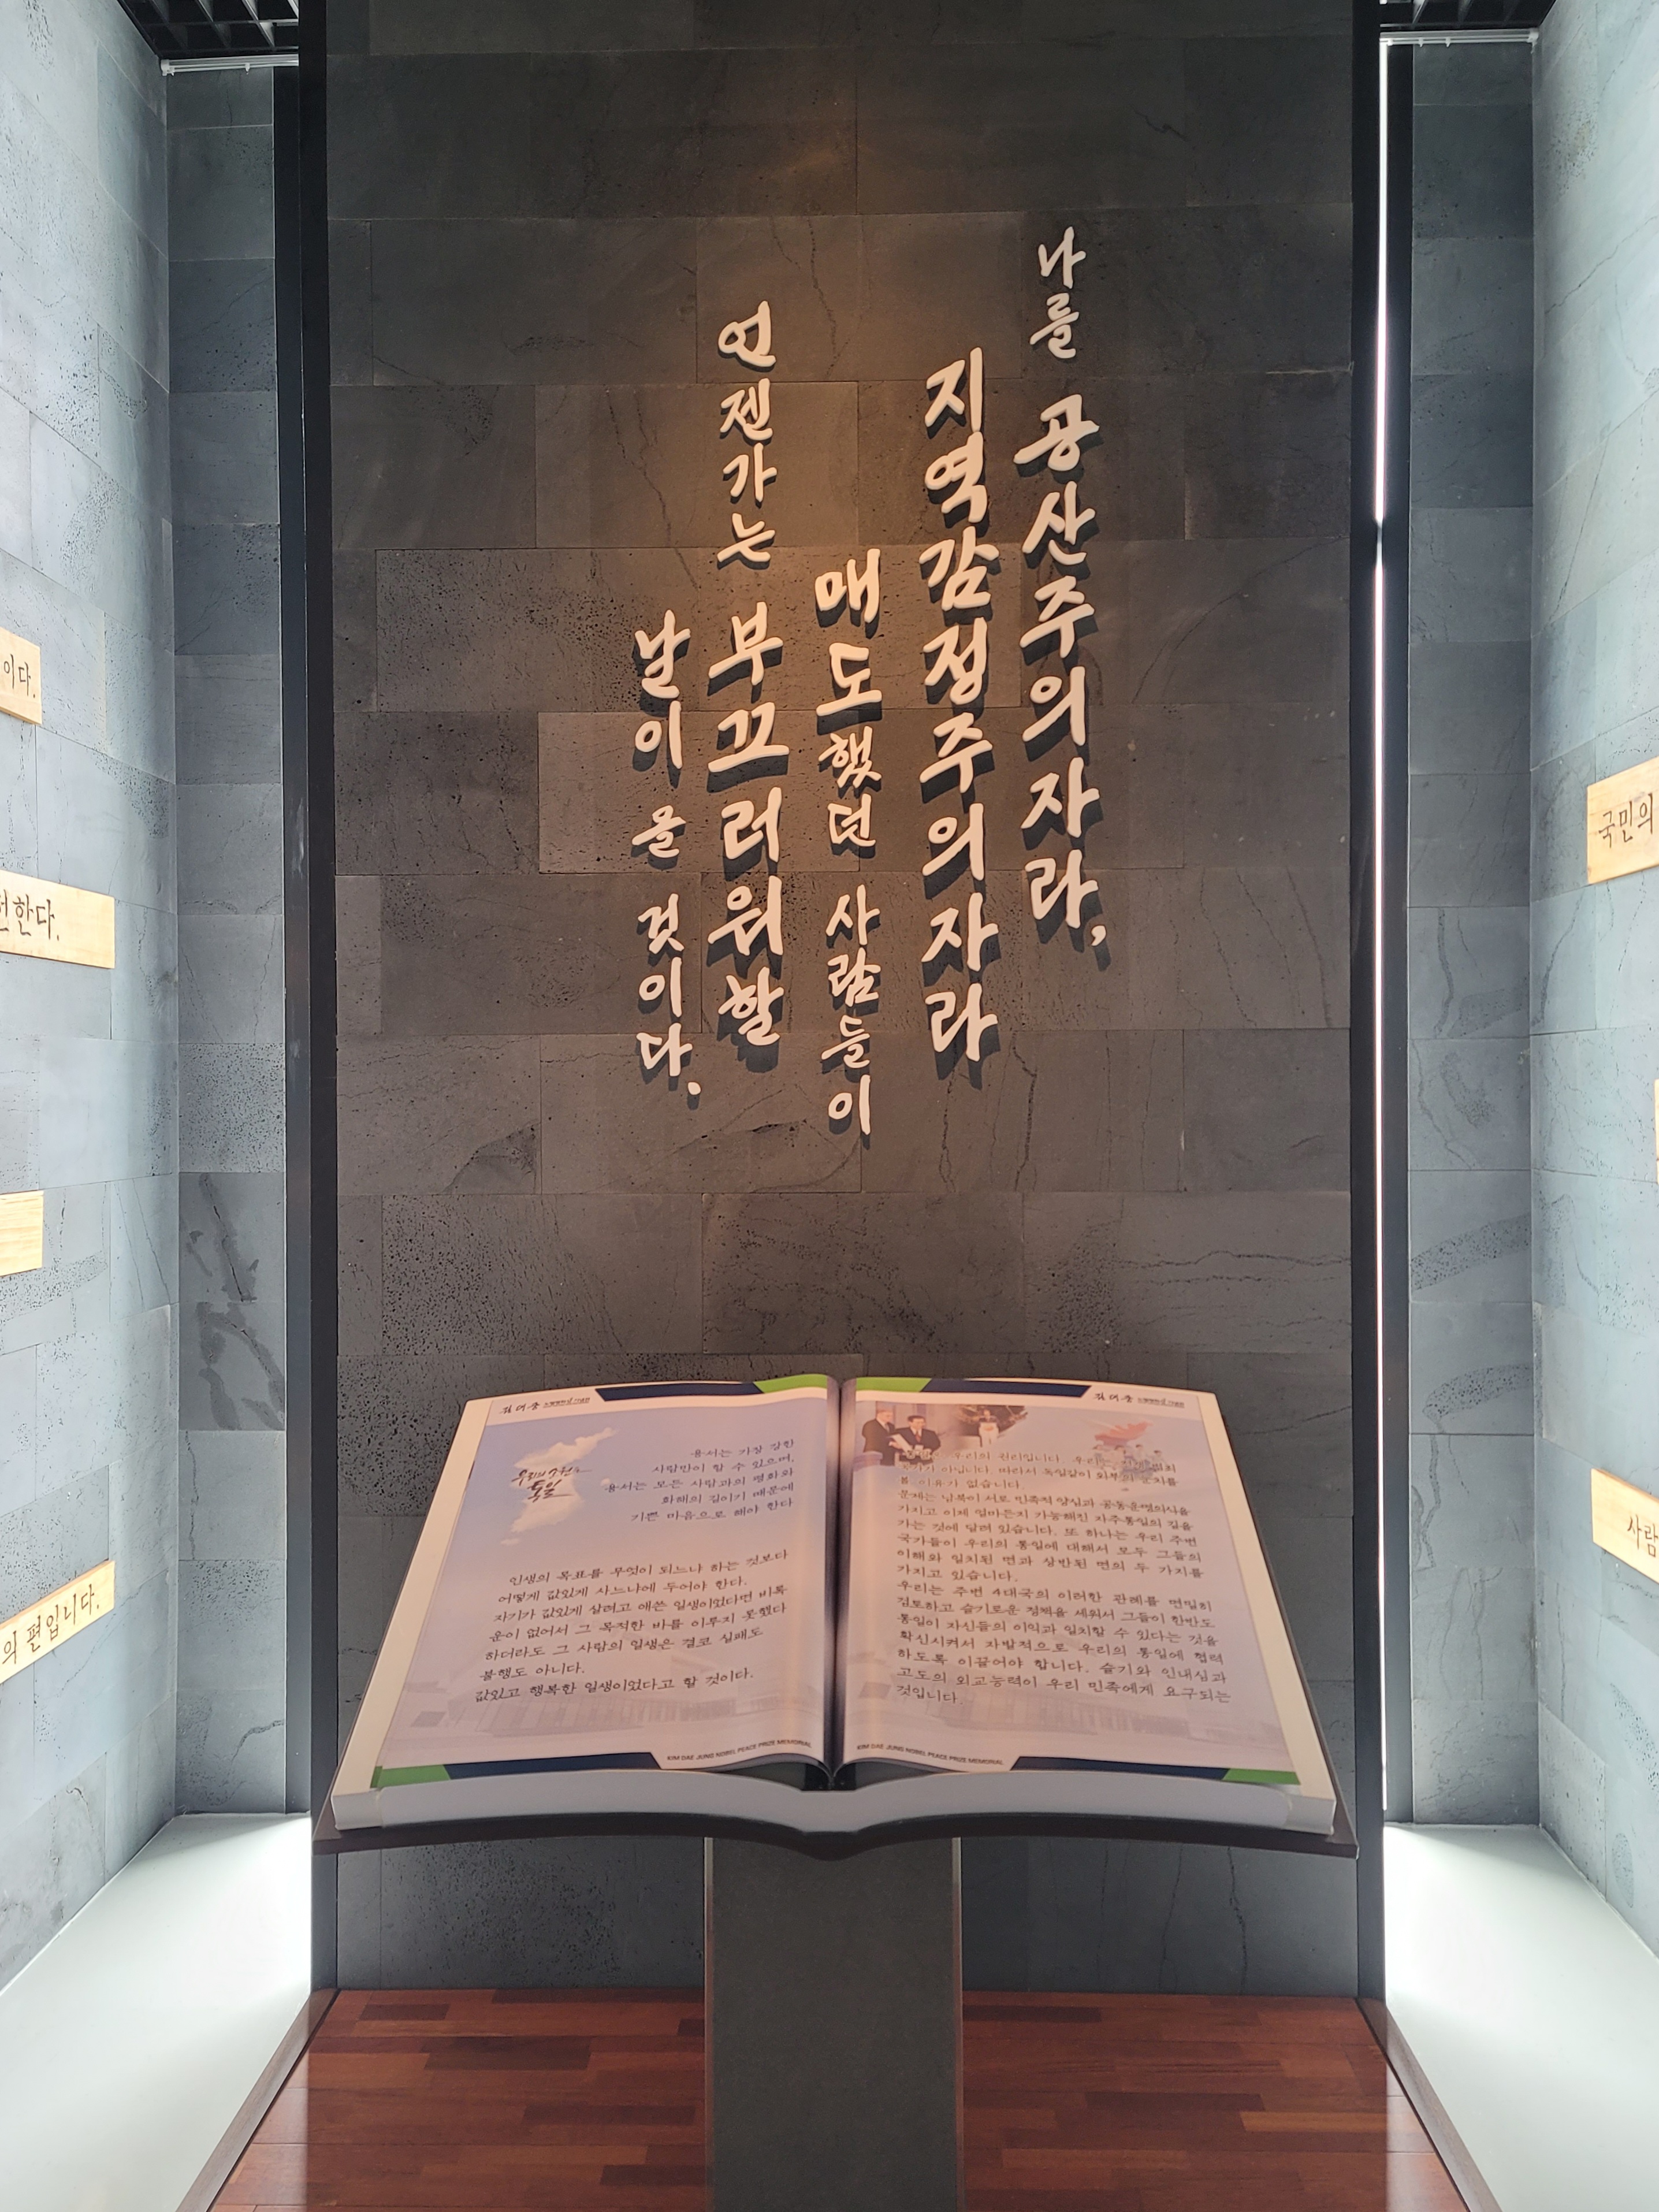 나를 공산주의자라,
지역감정주의자라
매도했던 사람들이
언젠가는 부끄러워할
날이 올 것이다.
이다.
한다.
의 편입니다.
국민의
사람
김대중 노벨평화상 기념관
우리의 소원은
통일
용서는 가장 강한
사람만이 할 수 있으며,
용서는 모든 사람과의 평화와
화해의 길이기 때문에
기쁜 마음으로 해야 한다
인생의 목표를 무엇이 되느냐 하는 것보다
어떻게 값있게 사느냐에 두어야 한다.
자기가 값있게 살려고 애쓴 일생이었다면 비록
운이 없어서 그 목적한 바를 이루지 못했다
하더라도 그 사람의 일생은 결코 실패도
불행도 아니다.
값있고 행복한 일생이었다고 할 것이다.
KIM DAE JUNG NOBEL PEACE PRIZE MEMORIAL
김대중 노벨평화상 기념관
우리의 권리입니다. 우리는
국가가 아닙니다. 따라서 독일같이 외부의 눈치를
볼 이유가 없습니다.
문제는 남북이 서로 민족적 양심과 공동운명의식을
가지고 이제 얼마든지 가능해진 자주통일의 길을
가는 것에 달려 있습니다. 또 하나는 우리 주변
국가들이 우리의 통일에 대해서 모두 그들의
이해와 일치된 면과 상반된 면의 두 가지를
가지고 있습니다.
우리는 주변 4대국의 이러한 관례를 면밀히
검토하고 슬기로운 정책을 세워서 그들이 한반도
통일이 자신들의 이익과 일치할 수 있다는 것을
확신시켜서 자발적으로 우리의 통일에 협력
하도록 이끌어야 합니다. 슬기와 인내심과
고도의 외교능력이 우리 민족에게 요구되는
것입니다.
KIM DAE JUNG NOBEL PEACE PRIZE MEMORIAL